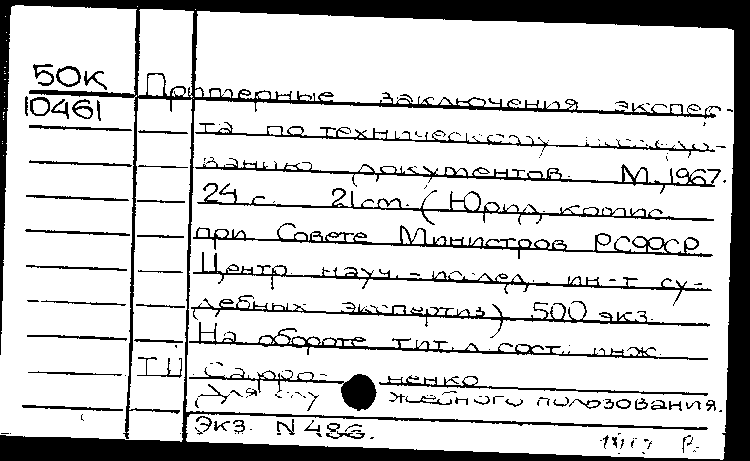 50К
10461
Примерные заключения экспер-
та по техническому исследо-
ванию документов. М., 1967.
24 с. 21 cm. (Юрид. комис.
при Совете Министров РСФСР.
Центр. науч.-исслед. ин-т су-
дебных экспертиз) 500 экз.
На обороте тит. л. сост.: инж.
Т.П. Сапро- ненко
Для слу жебного пользования.
Экз. N 486.